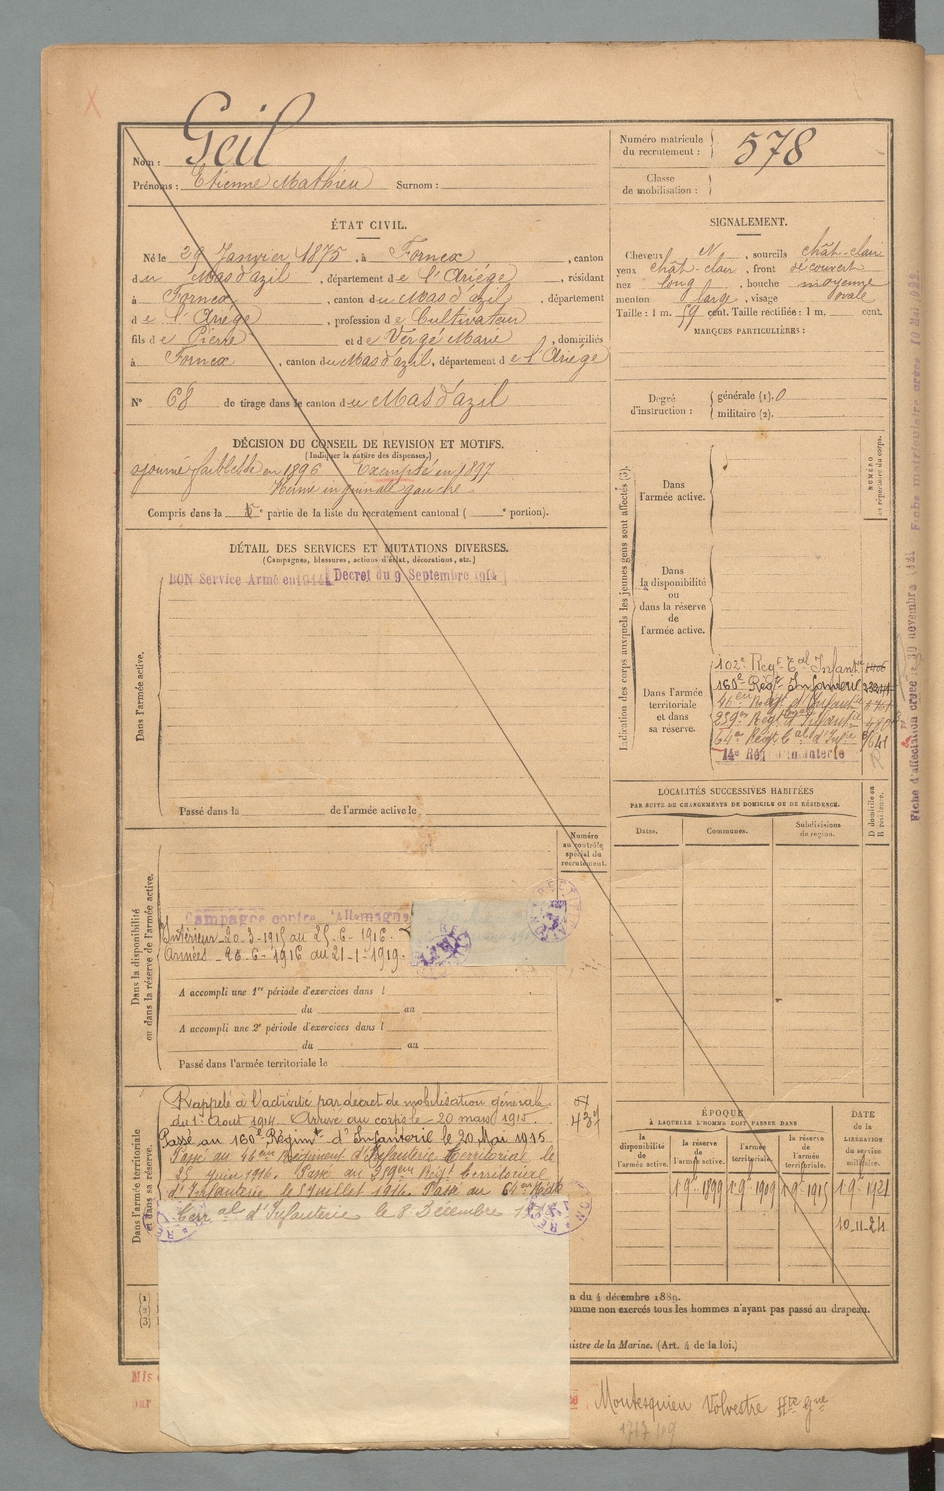 Nom : Geil
Prénoms : Etienne Mathieu Surnom :
Numéro matricule du recrutement : 578
Classe de mobilisation :
ÉTAT CIVIL.
Né le 29 Janvier 1875, à Fornex, canton
du Mas d'azil, département de l'Ariège, résidant
à Fornex, canton du Mas d'azil, département
de l'Ariège, profession de Cultivateur
fils de Pierre et de Vergé Marie, domiciliés
à Fornex, canton du Mas d'azil, département de l'Ariège
N° 68 de tirage dans le canton du Mas d'azil
SIGNALEMENT.
Cheveux N, sourcils chât-clair
yeux chât-clair, front découvert
nez long, bouche moyenne
menton large, visage ovale
Taille : 1 m. 59 cent. Taille rectifiée : 1 m. cent.
MARQUES PARTICULIÈRES :
Degré d'instruction : générale (1). 0
militaire (2).
DÉCISION DU CONSEIL DE REVISION ET MOTIFS.
(Indiquer la nature des dispenses.)
ajourné faiblesse en 1896 Exempté en 1897
Hernie inguinale gauche
Compris dans la e partie de la liste du recrutement cantonal ( e portion).
DÉTAIL DES SERVICES ET MUTATIONS DIVERSES.
(Campagnes, blessures, actions d'éclat, décorations, etc.)
BON Service Armé en 1914 Decret du 9 Septembre 1914
Dans l'armée active.
Passé dans la de l'armée active le
Numéro au contrôle spécial du recrutement.
Dans la disponibilité ou dans la réserve de l'armée active.
Campagne contre l'Allemagne
Intérieur - 20-3-1915 au 25-6-1916.
Armées - 26-6-1916 au 21-1-1919.
A accompli une 1re période d'exercices dans l
du au
A accompli une 2e période d'exercices dans l
du au
Passé dans l'armée territoriale le
Dans l'armée territoriale et dans sa réserve.
Rappelé à l'activité par décret de mobilisation générale
du 1er Août 1914. Arrivé au corps le 20 mars 1915.
Passé au 160e Régimt d'Infanterie le 20 Mai 1915
Passé au 46ème Régiment d'Infanterie territorial le
25 juin 1916. Passé au 259ème Régt territorial
d'Infanterie le 5 Juillet 1916. Passé au 64ème Régt
Terral d'Infanterie le 8 Décembre
437
Indication des corps auxquels les jeunes gens sont affectés (3).
NUMÉRO au répertoire du corps.
Dans l'armée active.
Dans la disponibilité ou dans la réserve de l'armée active.
Dans l'armée territoriale et dans sa réserve.
102e Regt Tal Infantrie
160e Régt Infanterie
46em Régt d'Infantie
259em Régt d'Infantie
64e Régt Tal d'Infie
14e Rég d'Infanterie
LOCALITÉS SUCCESSIVES HABITÉES
PAR SUITE DE CHANGEMENTS DE DOMICILE OU DE RÉSIDENCE.
Dates. Communes. Subdivisions de région. D domicile ou R résidence.
ÉPOQUE
À LAQUELLE L'HOMME DOIT PASSER DANS
DATE DE LA LIBÉRATION du service militaire.
la disponibilité de l'armée active. la réserve de l'armée active. l'armée territoriale. la réserve de l'armée territoriale.
1 9e 1899 1 9e 1909 1 9e 1915 1 9e 1921
10-11-21
(1)
(2)
(3)
n du 4 décembre 1889.
omme non exercés tous les hommes n'ayant pas passé au drapeau.
nistre de la Marine. (Art. 4 de la loi.)
Mis
par
Montesquieu Volvestre Hte Gne
Fiche d'affectation créée le 30 novembre 1921
Fiche matriculaire créée 10 Mai 1922